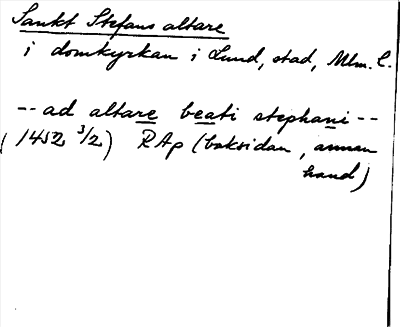 Sankt Stefans altare
i domkyrkan i Lund, stad, Mlm. l.
-- ad altare beati stephani --
(1452 3/2) RAp (baksidan, annan
hand)